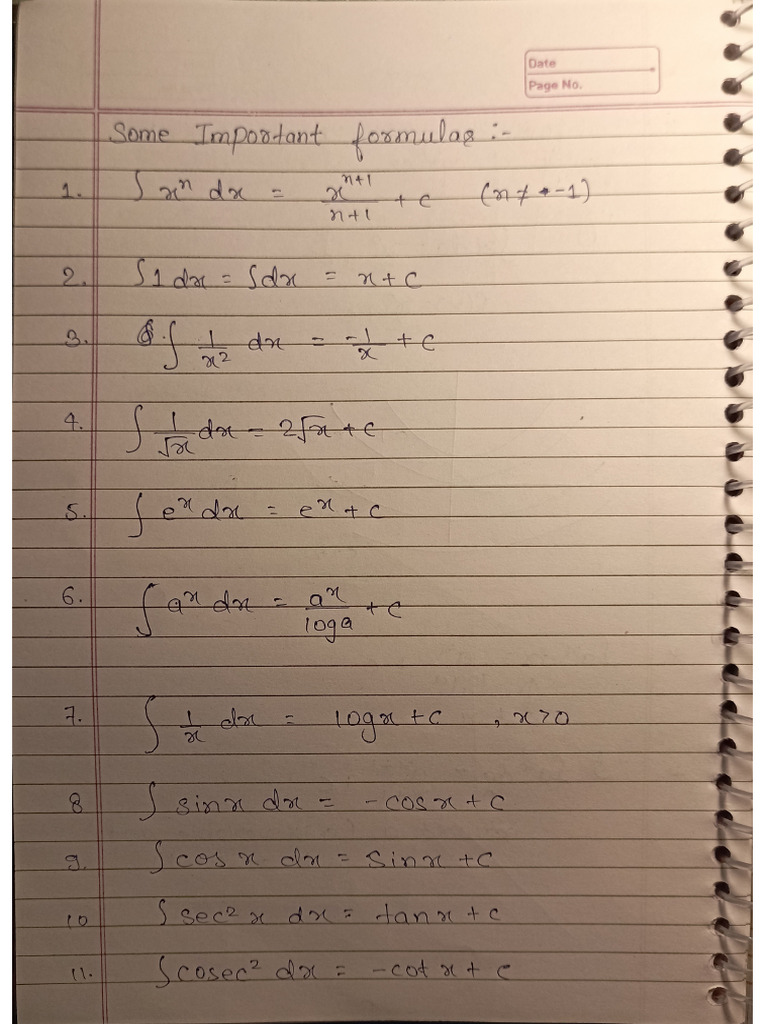 Date
Page No.
Some Important formulas :-
1. ∫ xⁿ dx = x^(n+1)/(n+1) + c (n ≠ -1)
2. ∫1 dx = ∫dx = x + c
3. ∫ 1/x² dx = -1/x + c
4. ∫ 1/√x dx = 2√x + c
5. ∫ eˣ dx = eˣ + c
6. ∫ aˣ dx = aˣ/loga + c
7. ∫ 1/x dx = logx + c , x>0
8 ∫ sinx dx = -cosx + c
9. ∫ cosx dx = sinx + c
10 ∫ sec²x dx = tanx + c
11. ∫ cosec² dx = -cotx + c